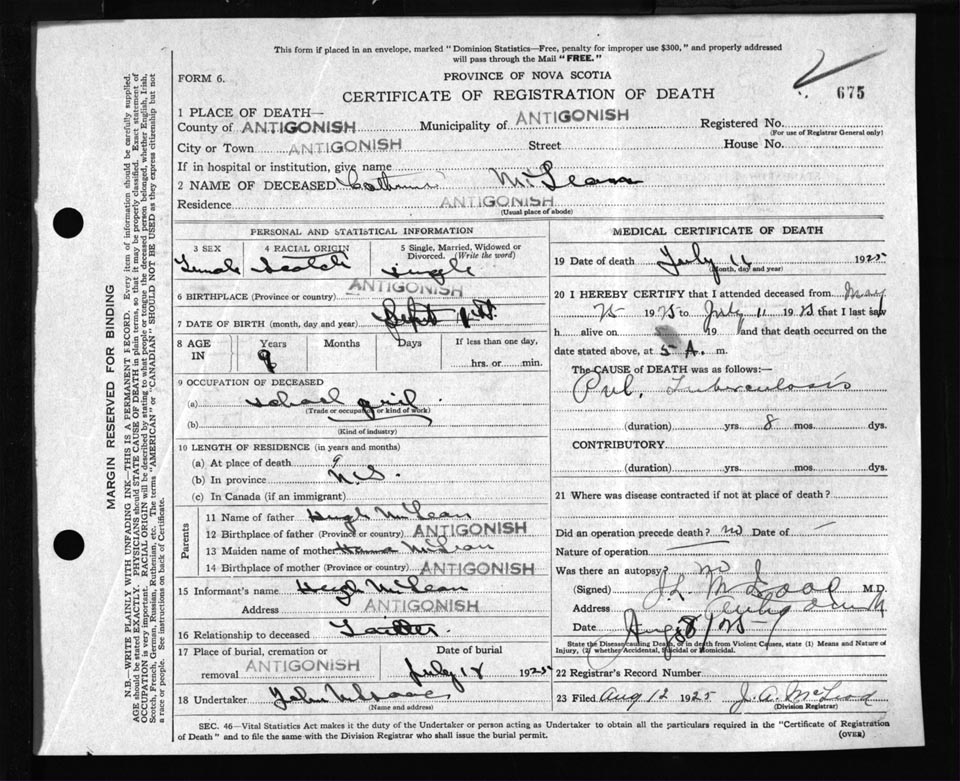 This form if placed in an envelope, marked "Dominion Statistics—Free, penalty for improper use $300," and properly addressed
will pass through the Mail "FREE."
FORM 6.
PROVINCE OF NOVA SCOTIA
675
CERTIFICATE OF REGISTRATION OF DEATH
1 PLACE OF DEATH—
County of ANTIGONISH Municipality of ANTIGONISH Registered No.
(For use of Registrar General only)
City or Town ANTIGONISH Street House No.
If in hospital or institution, give name
2 NAME OF DECEASED Catherine McLean
Residence ANTIGONISH
(Usual place of abode)
PERSONAL AND STATISTICAL INFORMATION
3 SEX 4 RACIAL ORIGIN 5 Single, Married, Widowed or Divorced. (Write the word)
Female Scotch single
6 BIRTHPLACE (Province or country) ANTIGONISH
7 DATE OF BIRTH (month, day and year) Sept
8 AGE IN Years Months Days If less than one day,
9 hrs. or min.
9 OCCUPATION OF DECEASED
(a) school girl
(Trade or occupation or kind of work)
(b)
(Kind of industry)
10 LENGTH OF RESIDENCE (in years and months)
(a) At place of death 9
(b) In province N.S.
(c) In Canada (if an immigrant)
Parents
11 Name of father Hugh McLean
12 Birthplace of father (Province or country) ANTIGONISH
13 Maiden name of mother McLean
14 Birthplace of mother (Province or country) ANTIGONISH
15 Informant's name Hugh McLean
Address ANTIGONISH
16 Relationship to deceased Father
17 Place of burial, cremation or removal Date of burial
ANTIGONISH July 18 1925
18 Undertaker John
(Name and address)
MEDICAL CERTIFICATE OF DEATH
19 Date of death July 11 1925
(Month, day and year)
20 I HEREBY CERTIFY that I attended deceased from May
25 1925 to July 11 1925 that I last saw
h alive on 19 and that death occurred on
date stated above, at 5 A. m.
The CAUSE of DEATH was as follows:—
Pul. Tuberculosis
(duration) yrs. 8 mos. dys.
CONTRIBUTORY
(duration) yrs. mos. dys.
21 Where was disease contracted if not at place of death?
Did an operation precede death? no Date of —
Nature of operation —
Was there an autopsy? no
(Signed) M.D.
Address Antigonish
Date Aug 8/25
State the Disease causing Death, or in death from Violent Causes, state (1) Means and Nature of
Injury, (2) whether Accidental, Suicidal or Homicidal.
22 Registrar's Record Number
23 Filed Aug 12 1925 J. A. McLeod
(Division Registrar)
SEC. 46—Vital Statistics Act makes it the duty of the Undertaker or person acting as Undertaker to obtain all the particulars required in the "Certificate of Registration
of Death" and to file the same with the Division Registrar who shall issue the burial permit.
(OVER)
MARGIN RESERVED FOR BINDING
N.B.—WRITE PLAINLY WITH UNFADING INK—THIS IS A PERMANENT RECORD. Every item of information should be carefully supplied.
AGE should be stated EXACTLY. PHYSICIANS should STATE CAUSE OF DEATH in plain terms, so that it may be properly classified. Exact statement of
OCCUPATION is very important. RACIAL ORIGIN will be described by stating to what people or tongue the deceased person belonged, whether English, Irish,
Scotch, French, German, Russian, Ruthenian, etc. The terms "AMERICAN" or "CANADIAN" SHOULD NOT BE USED as they express citizenship but not
a race or people. See instructions on back of Certificate.